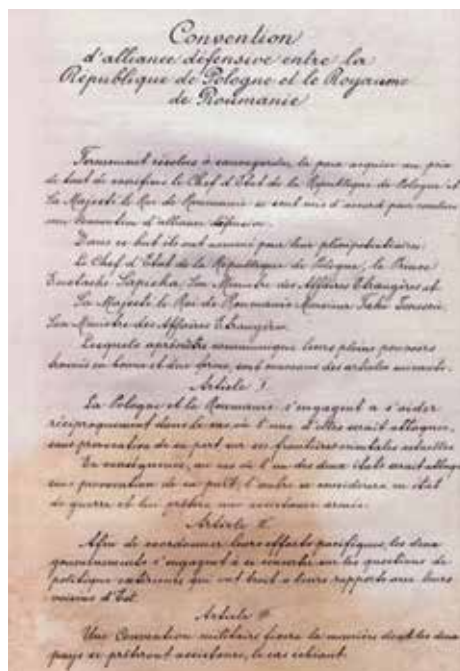 Convention
d'alliance défensive entre la
République de Pologne et le Royaume
de Roumanie
Fermement résolus à sauvegarder la paix acquise au prix
de tant de sacrifices le Chef d'Etat de la République de Pologne et
Sa Majesté le Roi de Roumanie se sont mis d'accord pour conclure
une Convention d'alliance défensive.
Dans ce but ils ont nommé pour leur plénipotentiaires:
Le Chef d'Etat de la République de Pologne, le Prince
Eustache Sapieha, Son Ministre des Affaires Etrangères et
Sa Majesté le Roi de Roumanie Monsieur Take Ionescu,
Son Ministre des Affaires Etrangères.
Lesquels après communiqué leurs pleins pouvoirs
trouvés en bonne et due forme, sont convenus des articles suivants.
Article I
La Pologne et la Roumanie s'engagent à s'aider
réciproquement dans le cas où l'une d'Elles serait attaquée,
sans provocation de sa part sur ses frontières orientales actuelles
En conséquence, au cas où l'un des deux états serait attaqué
sans provocation de sa part, l'autre se considérera en état
de guerre et lui prêtera une assistance armée.
Article II
Afin de coordonner leurs efforts pacifiques, les deux
gouvernements s'engagent à se concerter sur les questions de
politique extérieure qui ont trait à leurs rapports avec leurs
voisins d'Est.
Article
Une Convention militaire fixera la manière dont les deux
pays se prêteront assistance, le cas échéant.